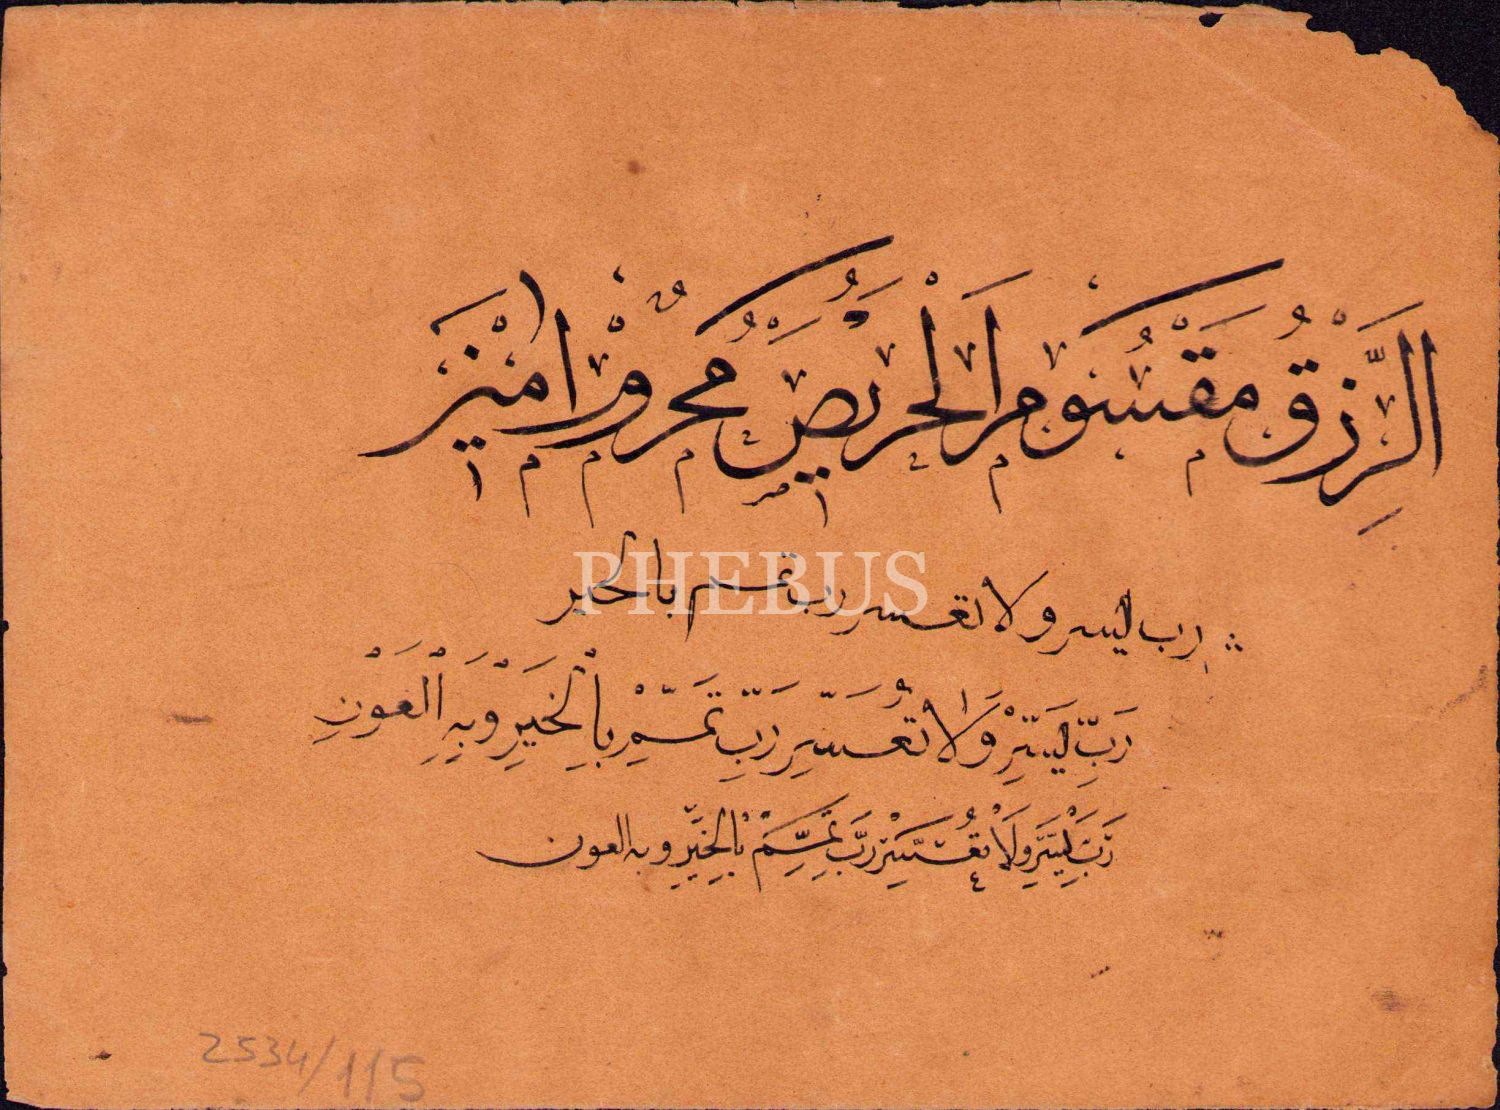 الرِّزْقُ مَقْسُومٌ الْحَرِيصُ مَحْرُومٌ امين
رب يسر ولا تعسر رب تمم بالخير
رَبِّ يَسِّرْ وَلَا تُعَسِّرْ رَبِّ تَمِّمْ بِالْخَيْرِ وَبِهِ الْعَوْنِ
رَبِّ يَسِّرْ وَلَا تُعَسِّرْ رَبِّ تَمِّمْ بِالْخَيْرِ وبه العون
PHEBUS
2534/115